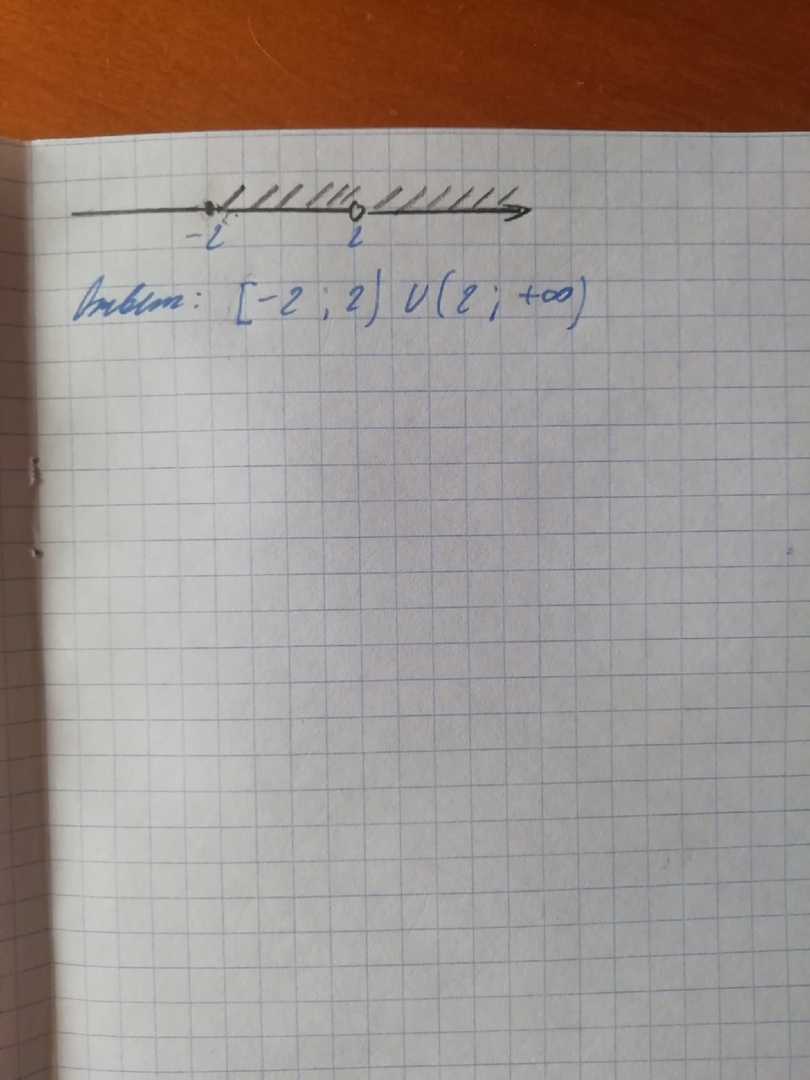 -2 2
Ответ: [-2 ; 2) ∪ (2 ; +∞)